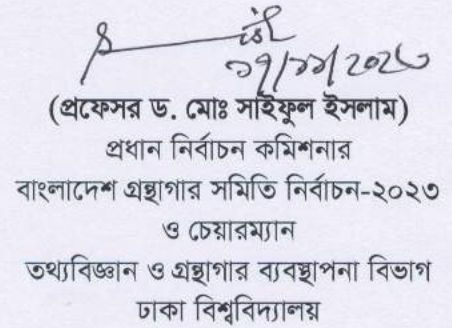 ১৭/১১/২০২৩
(প্রফেসর ড. মোঃ সাইফুল ইসলাম)
প্রধান নির্বাচন কমিশনার
বাংলাদেশ গ্রন্থাগার সমিতি নির্বাচন-২০২৩
ও চেয়ারম্যান
তথ্যবিজ্ঞান ও গ্রন্থাগার ব্যবস্থাপনা বিভাগ
ঢাকা বিশ্ববিদ্যালয়